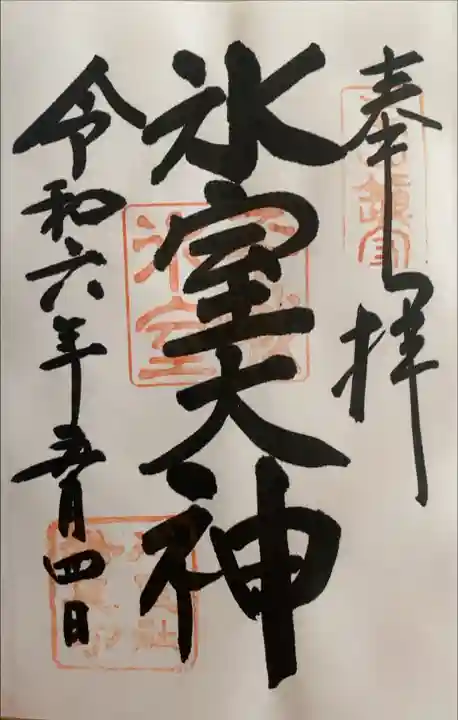 奉拝
氷室大神
令和六年五月四日
氷室